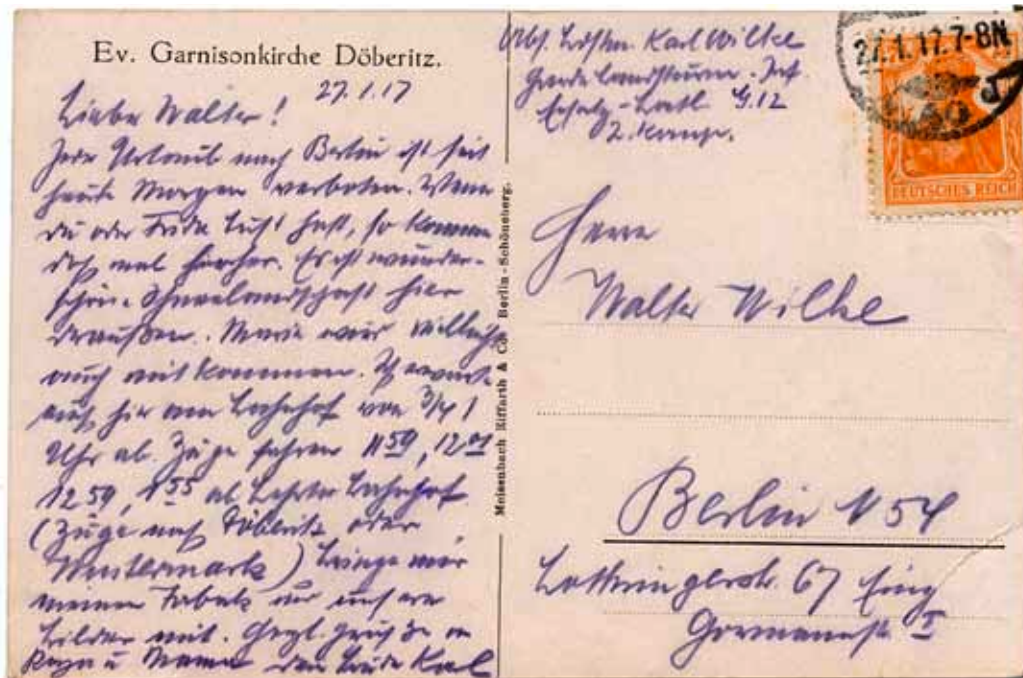 Ev. Garnisonkirche Döberitz.
27.1.17
Lieber Walter!
Jeder Urlaub nach Berlin ist seit
heute Morgen verboten. Wenn
du oder Frida Lust hast, so komm
doch mal hierher. Es ist wunder-
schöne Schneelandschaft hier
draußen. Marie wird vielleicht
auch mit kommen. Ich erwarte
euch hier am Bahnhof von 3/4 1
Uhr ab. Züge fahren 11 59, 12 01
12 59, 1 55 ab Lehrter Bahnhof
(Züge nach Döberitz oder
Wustermark) Bringe mir
meinen Tabak und unsere
Bilder mit. Herzl. Grüße an
Papa u Mama dein Bruder Karl
Meisenbach Riffarth & Co. Berlin-Schöneberg.
Abs. Ldstm. Karl Wilke
Garde Landsturm-Inf
Ersatz-Batl. G.12
2. Komp.
27.1.17.7-8N.
DEUTSCHES REICH
Herrn
Walter Wilke
Berlin N 54
Lothringerstr. 67 Eing